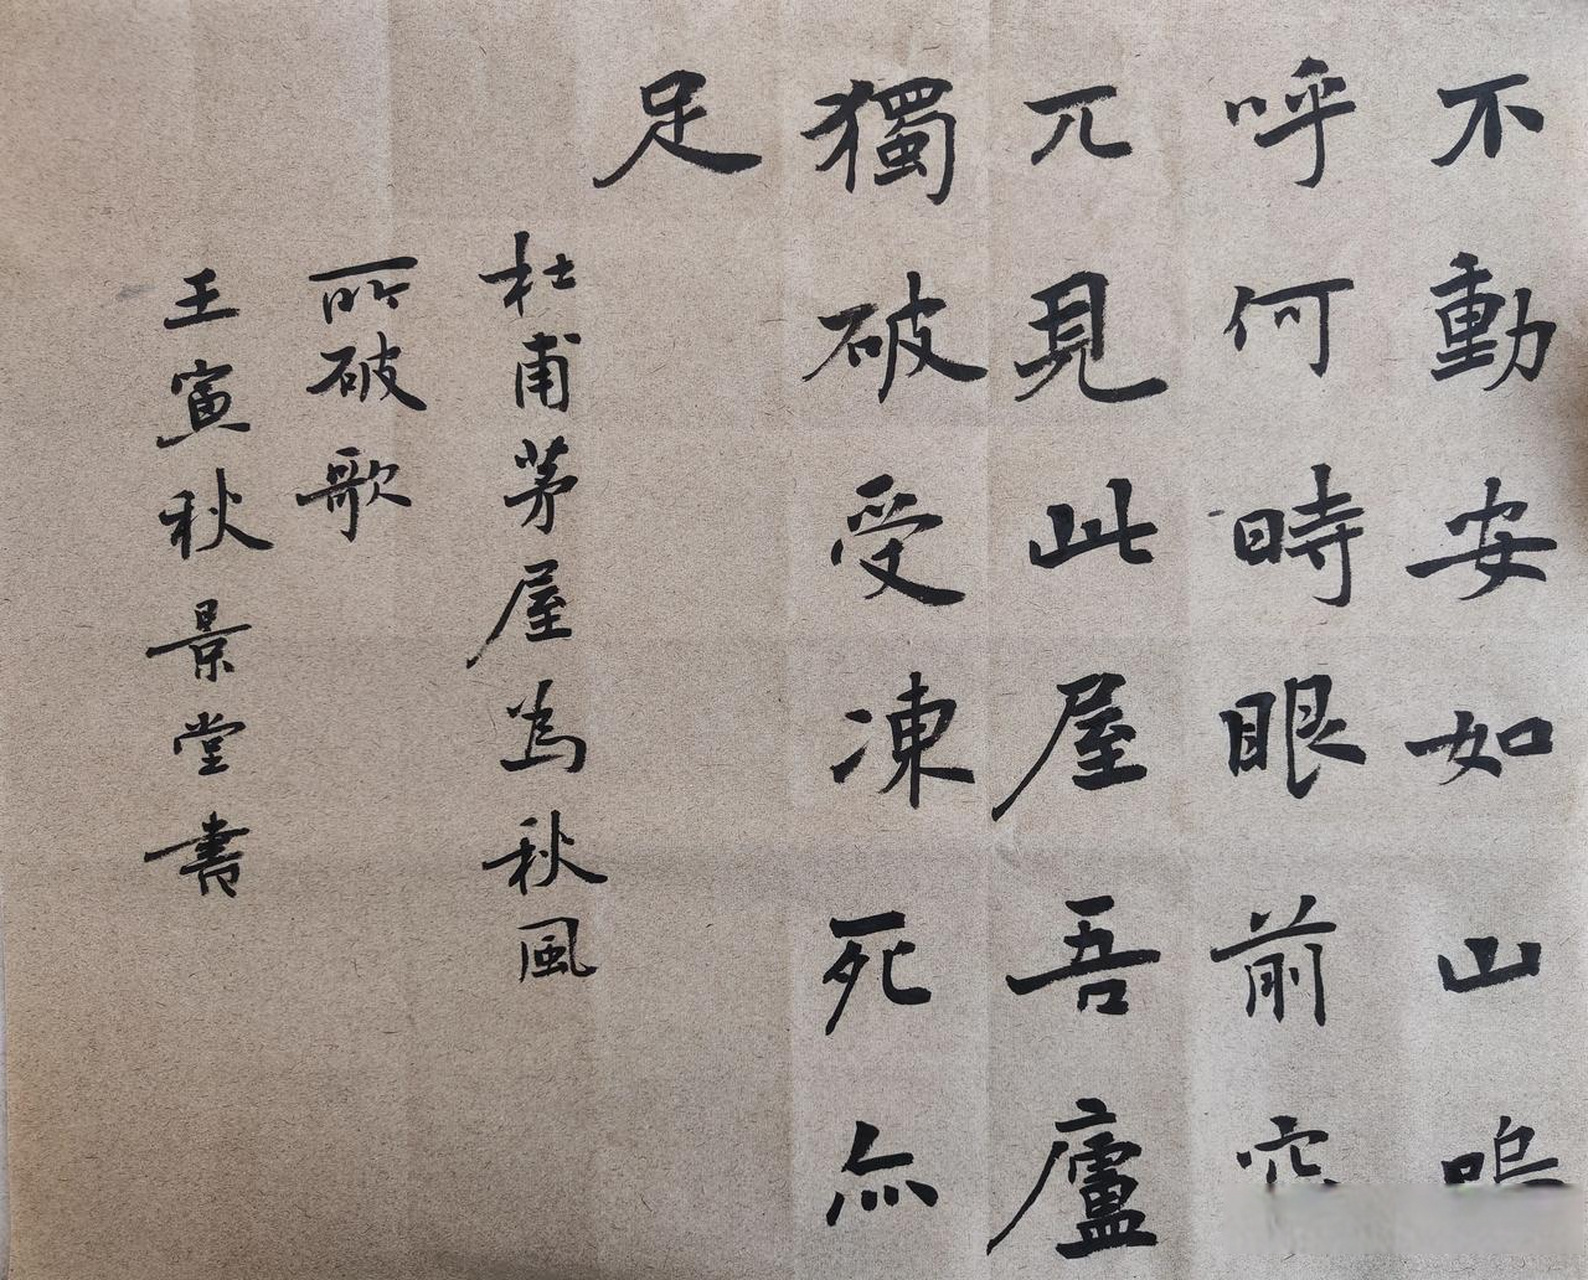 不動安如山嗚
呼何時眼前突
兀見此屋吾廬
獨破受凍死亦
足
杜甫茅屋為秋風
所破歌
壬寅秋景堂書